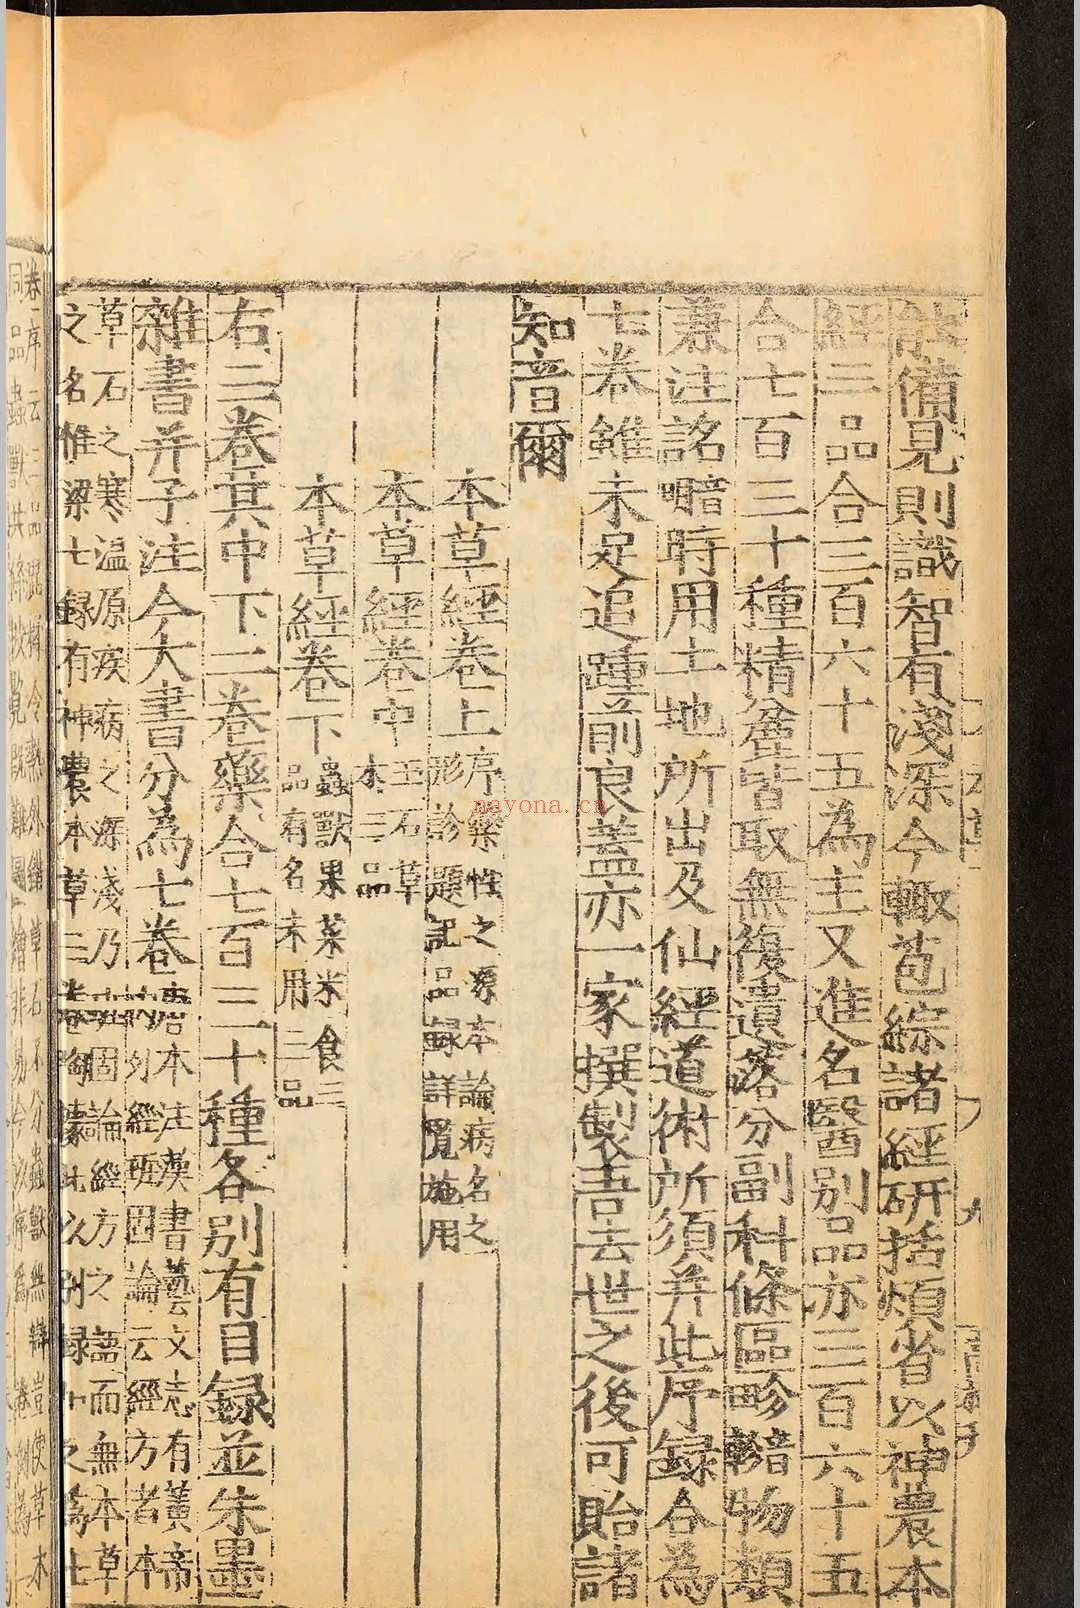 能備見則識智有淺深今輙苞綜諸經研括煩省以神農本
經三品合三百六十五為主又進名醫別品亦三百六十五
合七百三十種精麄皆取無復遺落分副科條區畛物類
兼注詺時用土地所出及仙經道術所須并此序録合為
七卷雖未足追踵前良蓋亦一家撰製吾去世之後可貽諸
知音爾
本草經卷上
序藥性之源本論病名之
形診題記品録詳覽施用
本草經卷中
玉石草
木三品
本草經卷下
蟲獸果菜米食三
品有名未用三品
右三卷其中下二卷藥合七百三十種各別有目録並朱墨
雜書并子注今大書分為七卷
唐本注漢書藝文志有黃帝
內外經班固論云經方者本
草石之寒温原疾病之深淺乃班固論經方之語而無本草
之名惟梁七録有神農本草三卷陶據此以別録加之為七
nayona.cn